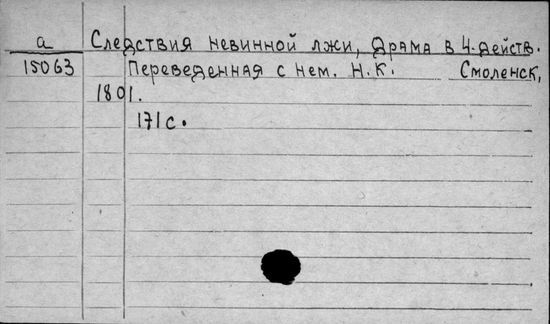 а Следствия невинной лжи, драма в 4. действ.
15063 Переведенная с нем. Н.К. Смоленск,
1801.
171 с.